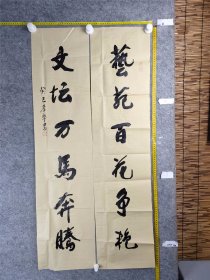 藝苑百花争艳
文坛万馬奔騰